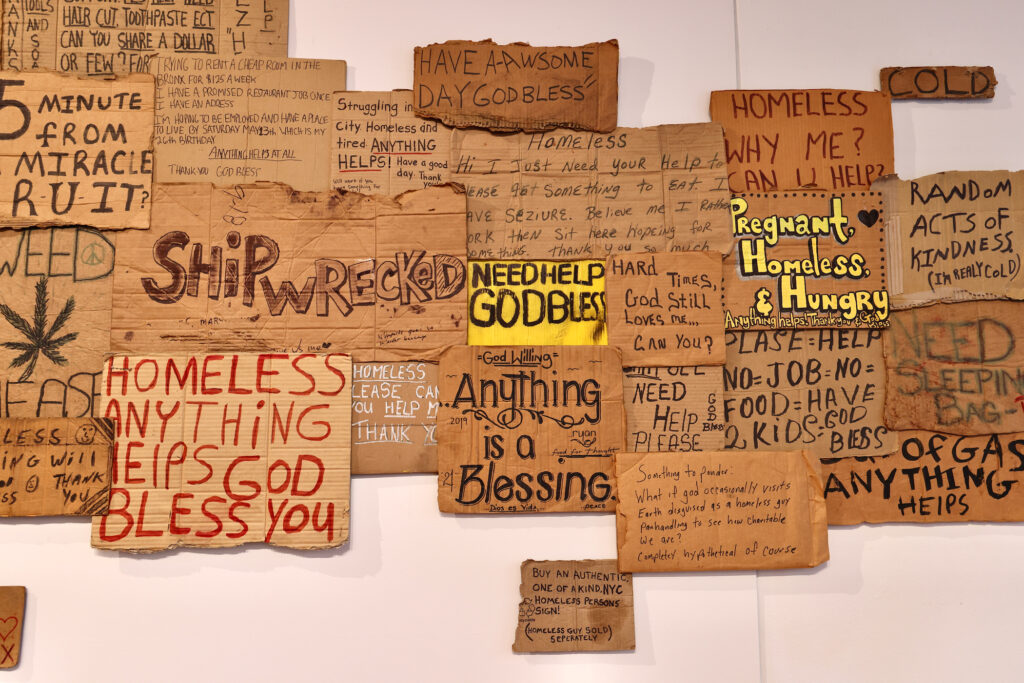 HAIR CUT, TOOTHPASTE ECT
CAN YOU SHARE A DOLLAR
OR FEW? FOR
TRYING TO RENT A CHEAP ROOM IN THE
BRONX FOR $125 A WEEK
I HAVE A PROMISED RESTAURANT JOB ONCE
I HAVE AN ADDRESS
I'M HOPING TO BE EMPLOYED AND HAVE A PLACE
TO LIVE BY SATURDAY MAY 13th WHICH IS MY
26th BIRTHDAY
ANYTHING HELPS AT ALL
THANK YOU GOD BLESS
5 MINUTE
FROM
MIRACLE
R-U-IT?
Struggling in
City Homeless and
tired ANYTHING
HELPS! Have a good
day. Thank
you
HAVE A-AWSOME
DAY GOD BLESS"
Homeless
Hi I Just Need your Help to
get Something to EAT. I
SEZIURE. Believe me I Rather
then Sit here hopeing for
THANK you so much
HOMELESS
WHY ME?
CAN U HELP?
COLD
RANDOM
ACTS OF
KINDNESS
(Im REALY COLD)
Pregnant,
Homeless,
& Hungry
Anything helps. Thank you & God
Bless
NEED
EASE
SHiPWRECKED
NEED HELP
GOD BLESS
HARD TIMES,
God Still
LOVES ME...
CAN YOU?
NEED
SLEEPING
BAG
HOMELESS
ANYTHiNG
HElPS GOD
BLESS YOU
HOMELESS
LEASE CAN
YOU HELP M
THANK YO
=God Willing=
Anything
2019
is a
Blessing.
Dios es Vida...
peace
Food for Thought
NEED
HELP
PLEASE
GOD
Bless
PLASE=HELP
NO=JOB=NO=
FOOD=HAVE
2 KIDS=GOD
BLESS
OF GAS
ANYTHING
HElPS
LESS
ING Will
THANK
YOU
Something to ponder:
What if god occasionally visits
Earth disguised as a homeless guy
Panhandling to see how charitable
We are?
Completely hypothetical of course
BUY AN AUTHENTIC,
ONE OF A KIND, NYC
HOMELESS PERSONS
SIGN!
(HOMELESS GUY SOLD
SEPERATELY)